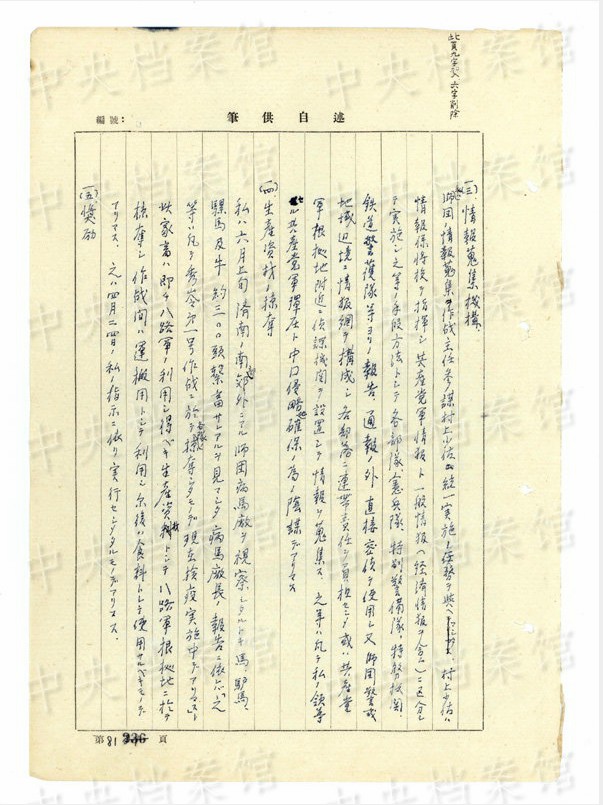 此頁九字改 六字削除
述自供筆
編號：
(三)情報蒐集機構
師団ノ情報蒐集ハ作戦主任参謀村上少佐ニ統一実施ノ任務ヲ与ヘ 村上少佐ハ
情報係将校ヲ指揮シ共産党軍情報ト一般情報(経済情報ヲ含ム)ニ区分シ
テ実施シ之等ノ手段方法トシテ各部隊、憲兵隊、特別警備隊、特務機関
鉄道警護隊等ヨリノ報告、通報ノ外直接密偵ヲ使用シ又師団警戒
地域辺境ニ情報網ヲ構成シ各部落ニ連帯責任ヲ負担セシメ或ハ共産党
軍根拠地附近ニ偵諜機関ヲ設置シテ情報ヲ蒐集ス 之等ハ凡テ私ノ領導
ル共産党軍弾圧ト中国侵略地確保ノ為ノ陰謀デアリマス
(四)生産資材ノ掠奪
私ハ六月上旬済南ノ南郊外ニアル師団病馬廠ヲ視察シタルトキ馬、驢馬、
騾馬及牛約三〇〇頭繋畜サレアルヲ見マシタ 病馬廠長ノ報告ニ依レバ之
等ハ凡テ秀嶺第一号作戦ニ於テ各隊ガ掠奪シタモノデ現在検疫実施中デアリマス
此家畜ハ即チ八路軍ノ利用シ得ベキ生産資材トシテ八路軍根拠地ニ於テ
掠奪シ作戦間ハ運搬用トシテ利用シ尓後ハ食料トシテ使用サルベキモノデ
アリマス、之ハ四月二四日ノ私ノ指示ニ依リ実行セシメタルモノデアリマス、
(五)奨励
第 18 336 頁
中央档案馆